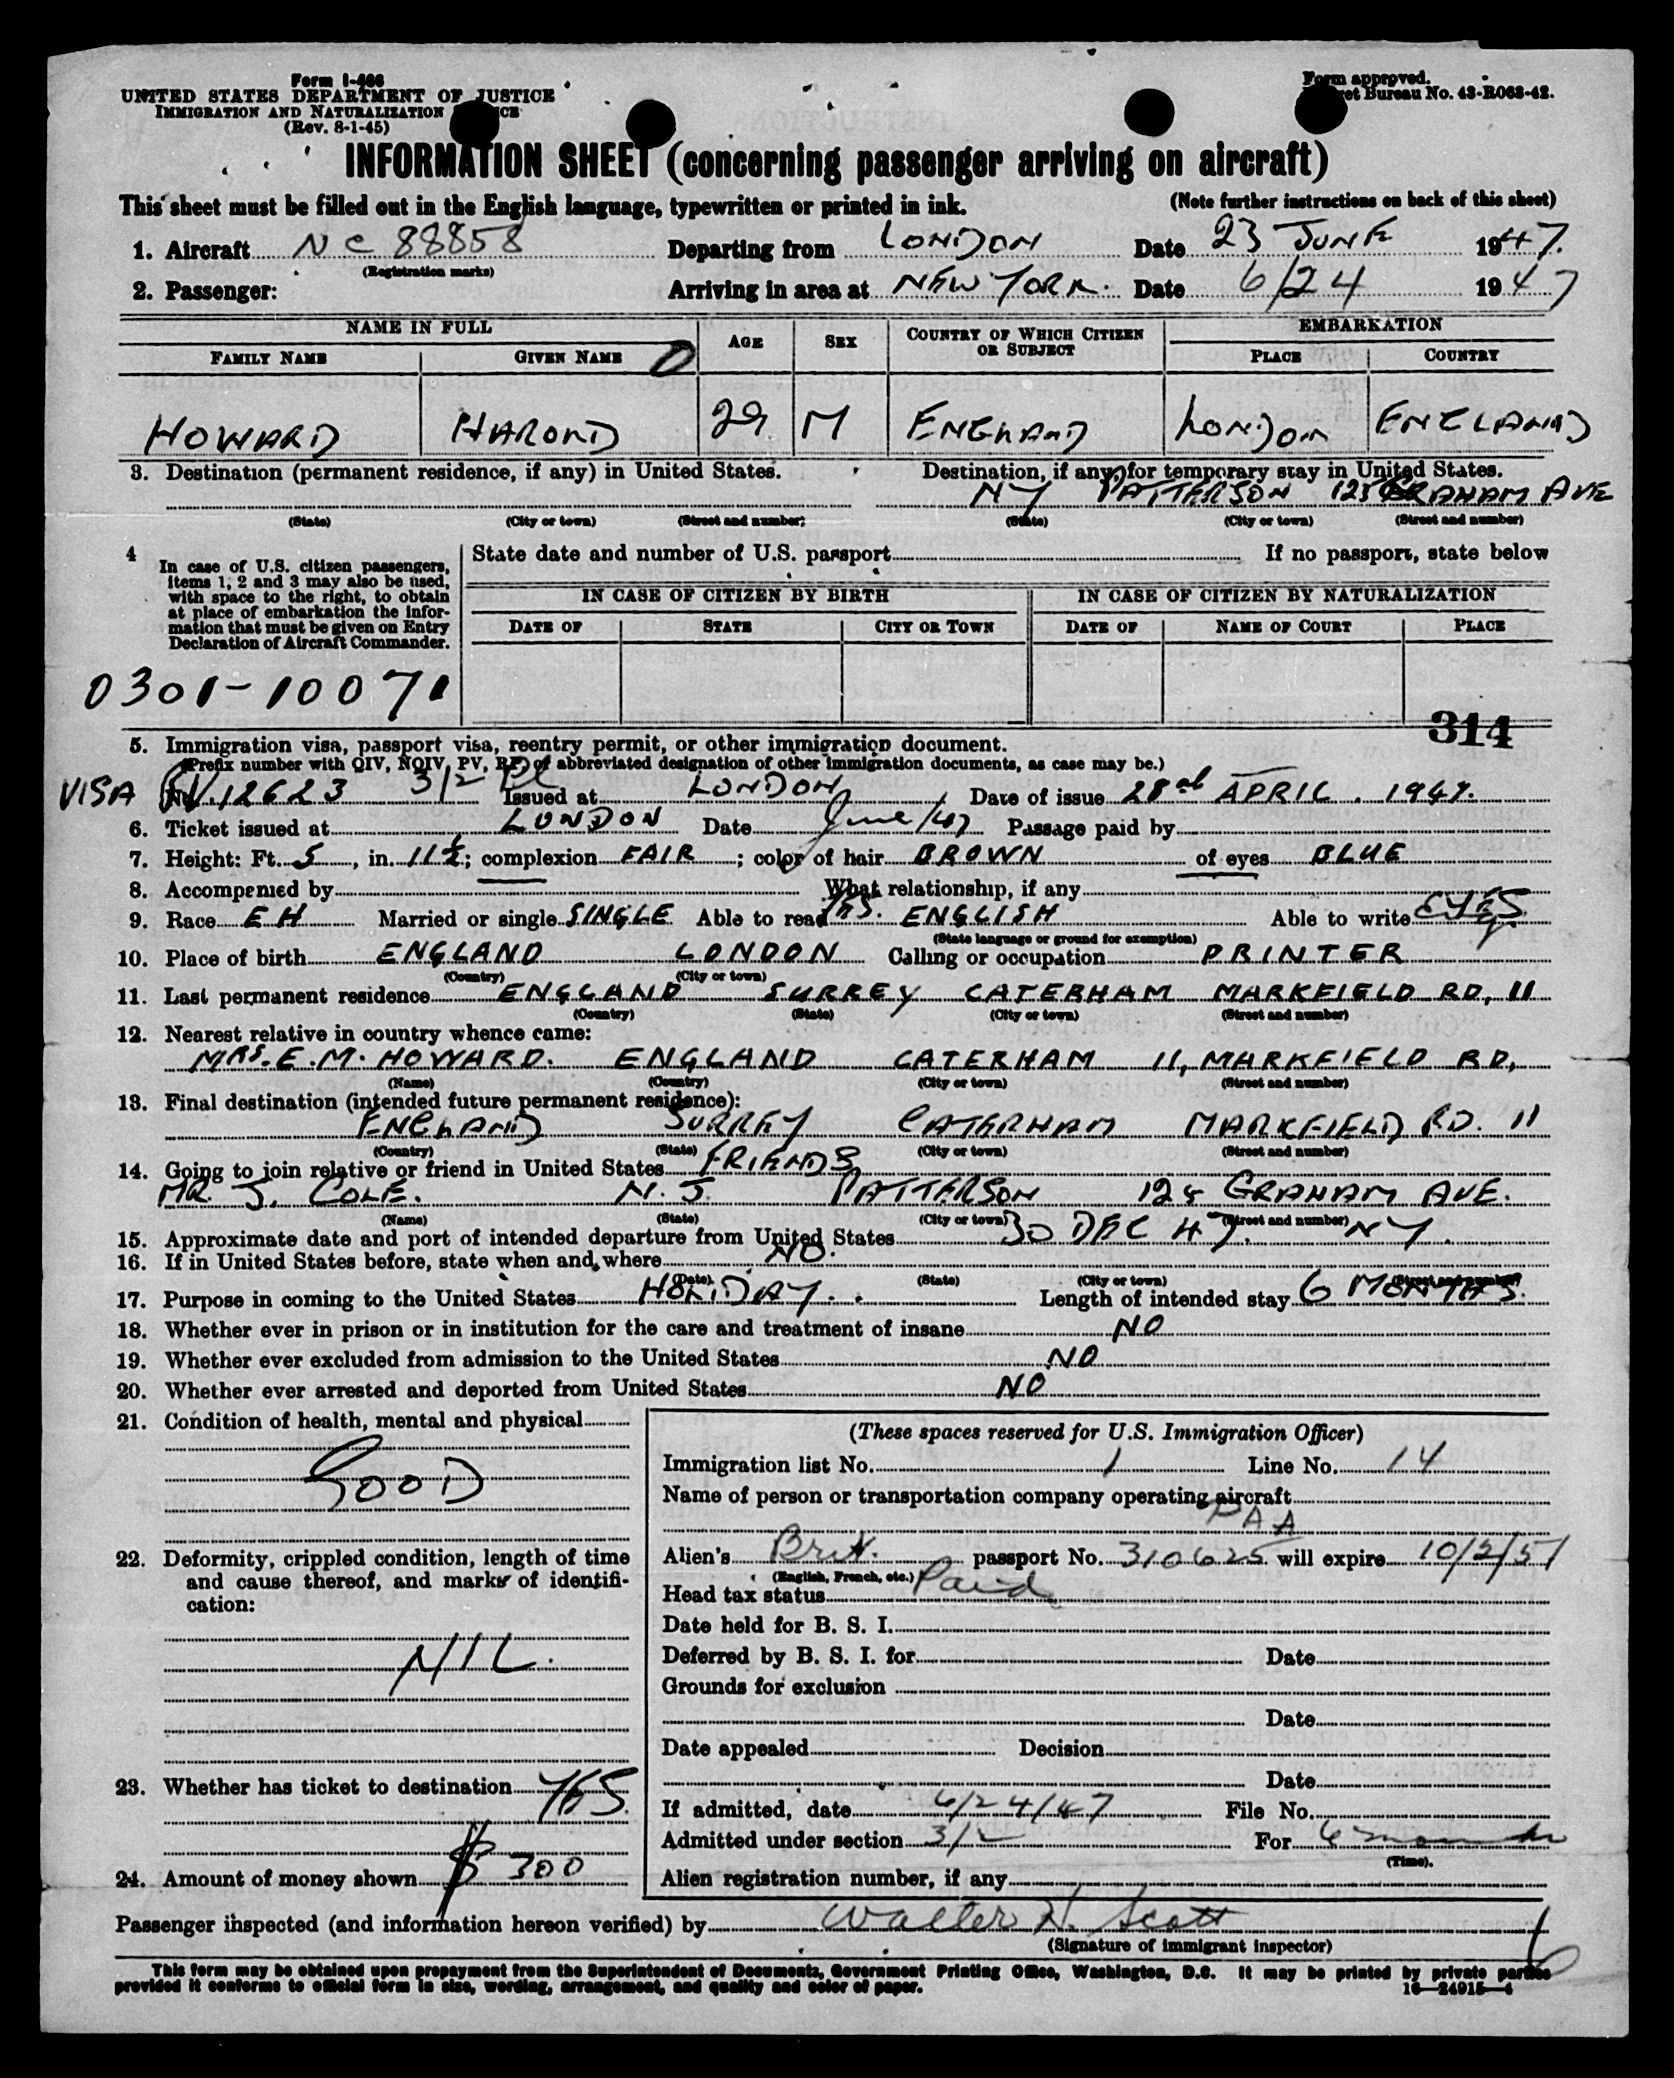 Form I-466
UNITED STATES DEPARTMENT OF JUSTICE
IMMIGRATION AND NATURALIZATION
(Rev. 8-1-45)
Form approved.
Bureau No. 43-R063-42.
INFORMATION SHEET (concerning passenger arriving on aircraft)
This sheet must be filled out in the English language, typewritten or printed in ink.
(Note further instructions on back of this sheet)
1. Aircraft NC 88858 Departing from LONDON Date 23 JUNE 1947.
(Registration marks)
2. Passenger: Arriving in area at NEW YORK. Date 6/24 1947
NAME IN FULL AGE SEX COUNTRY OF WHICH CITIZEN OR SUBJECT EMBARKATION
FAMILY NAME GIVEN NAME PLACE COUNTRY
HOWARD HAROLD 29 M ENGLAND LONDON ENGLAND
3. Destination (permanent residence, if any) in United States. Destination, if any, for temporary stay in United States.
NY PATTERSON 125 GRAHAM AVE
(State) (City or town) (Street and number) (State) (City or town) (Street and number)
4 In case of U.S. citizen passengers, items 1, 2 and 3 may also be used, with space to the right, to obtain at place of embarkation the information that must be given on Entry Declaration of Aircraft Commander.
State date and number of U.S. passport If no passport, state below
IN CASE OF CITIZEN BY BIRTH IN CASE OF CITIZEN BY NATURALIZATION
DATE OF STATE CITY OR TOWN DATE OF NAME OF COURT PLACE
0301-10071
314
5. Immigration visa, passport visa, reentry permit, or other immigration document.
(Prefix number with QIV, NQIV, PV, RP, of abbreviated designation of other immigration documents, as case may be.)
VISA No. 12623 3/2 Issued at LONDON Date of issue 28th APRIL. 1947.
6. Ticket issued at LONDON Date June/47 Passage paid by
7. Height: Ft. 5, in. 11½; complexion FAIR; color of hair BROWN of eyes BLUE
8. Accompanied by What relationship, if any
9. Race EH Married or single SINGLE Able to read YES. ENGLISH Able to write YES
(State language or ground for exemption)
10. Place of birth ENGLAND LONDON Calling or occupation PRINTER
(Country) (City or town)
11. Last permanent residence ENGLAND SURREY CATERHAM MARKFIELD RD, 11
(Country) (State) (City or town) (Street and number)
12. Nearest relative in country whence came:
MRS. E. M. HOWARD. ENGLAND CATERHAM 11, MARKFIELD RD,
(Name) (Country) (City or town) (Street and number)
13. Final destination (intended future permanent residence):
ENGLAND SURREY CATERHAM MARKFIELD RD. 11
(Country) (State) (City or town) (Street and number)
14. Going to join relative or friend in United States FRIENDS
MR. J. COLE. N. J. PATTERSON 125 GRAHAM AVE.
(Name) (State) (City or town) (Street and number)
15. Approximate date and port of intended departure from United States 30 DEC 47. NY.
16. If in United States before, state when and where NO.
(Date) (State) (City or town) (Street and number)
17. Purpose in coming to the United States HOLIDAY. Length of intended stay 6 MONTHS.
18. Whether ever in prison or in institution for the care and treatment of insane NO
19. Whether ever excluded from admission to the United States NO
20. Whether ever arrested and deported from United States NO
21. Condition of health, mental and physical
GOOD
22. Deformity, crippled condition, length of time and cause thereof, and marks of identification:
NIL.
23. Whether has ticket to destination YES.
24. Amount of money shown $ 300
(These spaces reserved for U.S. Immigration Officer)
Immigration list No. 1 Line No. 14
Name of person or transportation company operating aircraft
PAA
Alien's Brit. passport No. 310625 will expire 10/2/51
(English, French, etc.)
Head tax status Paid
Date held for B. S. I.
Deferred by B. S. I. for Date
Grounds for exclusion
Date
Date appealed Decision
Date
If admitted, date 6/24/47 File No.
Admitted under section 3/2 For 6 months
(Time).
Alien registration number, if any
Passenger inspected (and information hereon verified) by Walter H. Scott
(Signature of immigrant inspector)
This form may be obtained upon prepayment from the Superintendent of Documents, Government Printing Office, Washington, D.C. It may be printed by private parties
provided it conforms to official form in size, wording, arrangement, and quality and color of paper.
16—24915—4